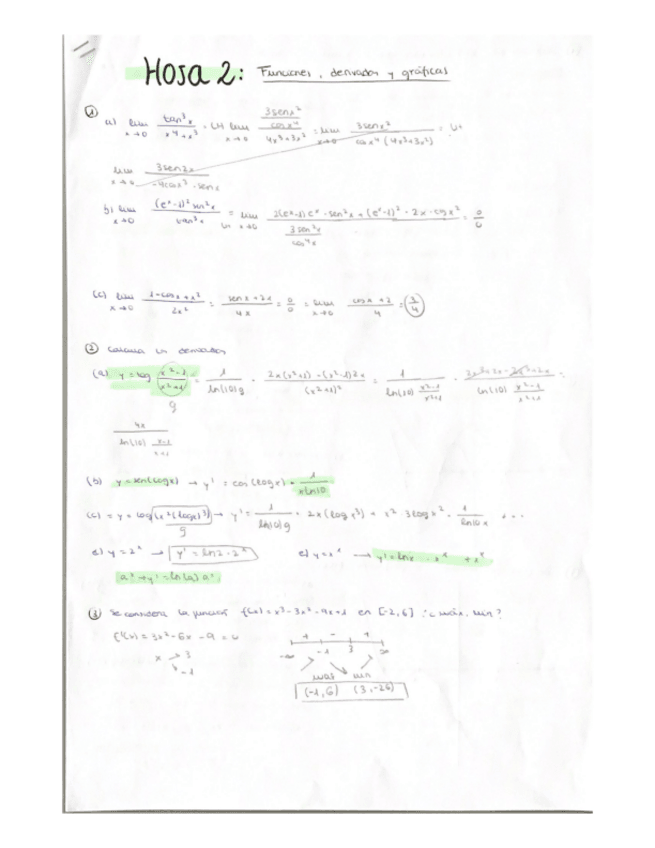 Hosa 2: Funciones, derivadas y gráficas
① a) lim x→0 tan³x / x⁴+x³ = LH lim x→0 (3senx² / cosx⁴) / 4x³+3x² = lim x→0 3senx² / cosx⁴ (4x³+3x²) =
lim x→0 3sen2x / -4cosx³·senx
b) lim x→0 (eˣ-1)² sen²x / tan³x = lim x→0 2(eˣ-1)eˣ·sen²x + (eˣ-1)²·2x·cosx² / (3sen²x / cos⁴x) = 0/0
(c) lim x→0 1-cosx+x² / 2x² = senx+2x / 4x = 0/0 = lim x→0 cosx+2 / 4 = 3/4
② Calcula las derivadas
(a) y = log x²-1 / x²+1 = 1 / ln(10)g · 2x(x²+1)-(x²-1)2x / (x²+1)² = 1 / ln(10) x²-1 / x²+1 ·
g
4x / ln(10)
(b) y = sen(logx) → y' = cos(logx) · 1 / xln10
(c) = y = log(x²(logx)³) → y' = 1 / ln(10)g · 2x(logx³) + x² 3logx² · 1 / ln10x
g
y = 2ˣ → y' = ln2·2ˣ e) y = xˣ → y' = lnx · xˣ + xˣ
aˣ → y' = ln(a) aˣ
③ Se considera la función f(x) = x³-3x²-9x+1 en [-2,6] ¿máx, mín?
f'(x) = 3x²-6x-9 = 0
+ - +
x 3
-1
-∞ -1 3 ∞
max min
(-1,6) (3,-26)